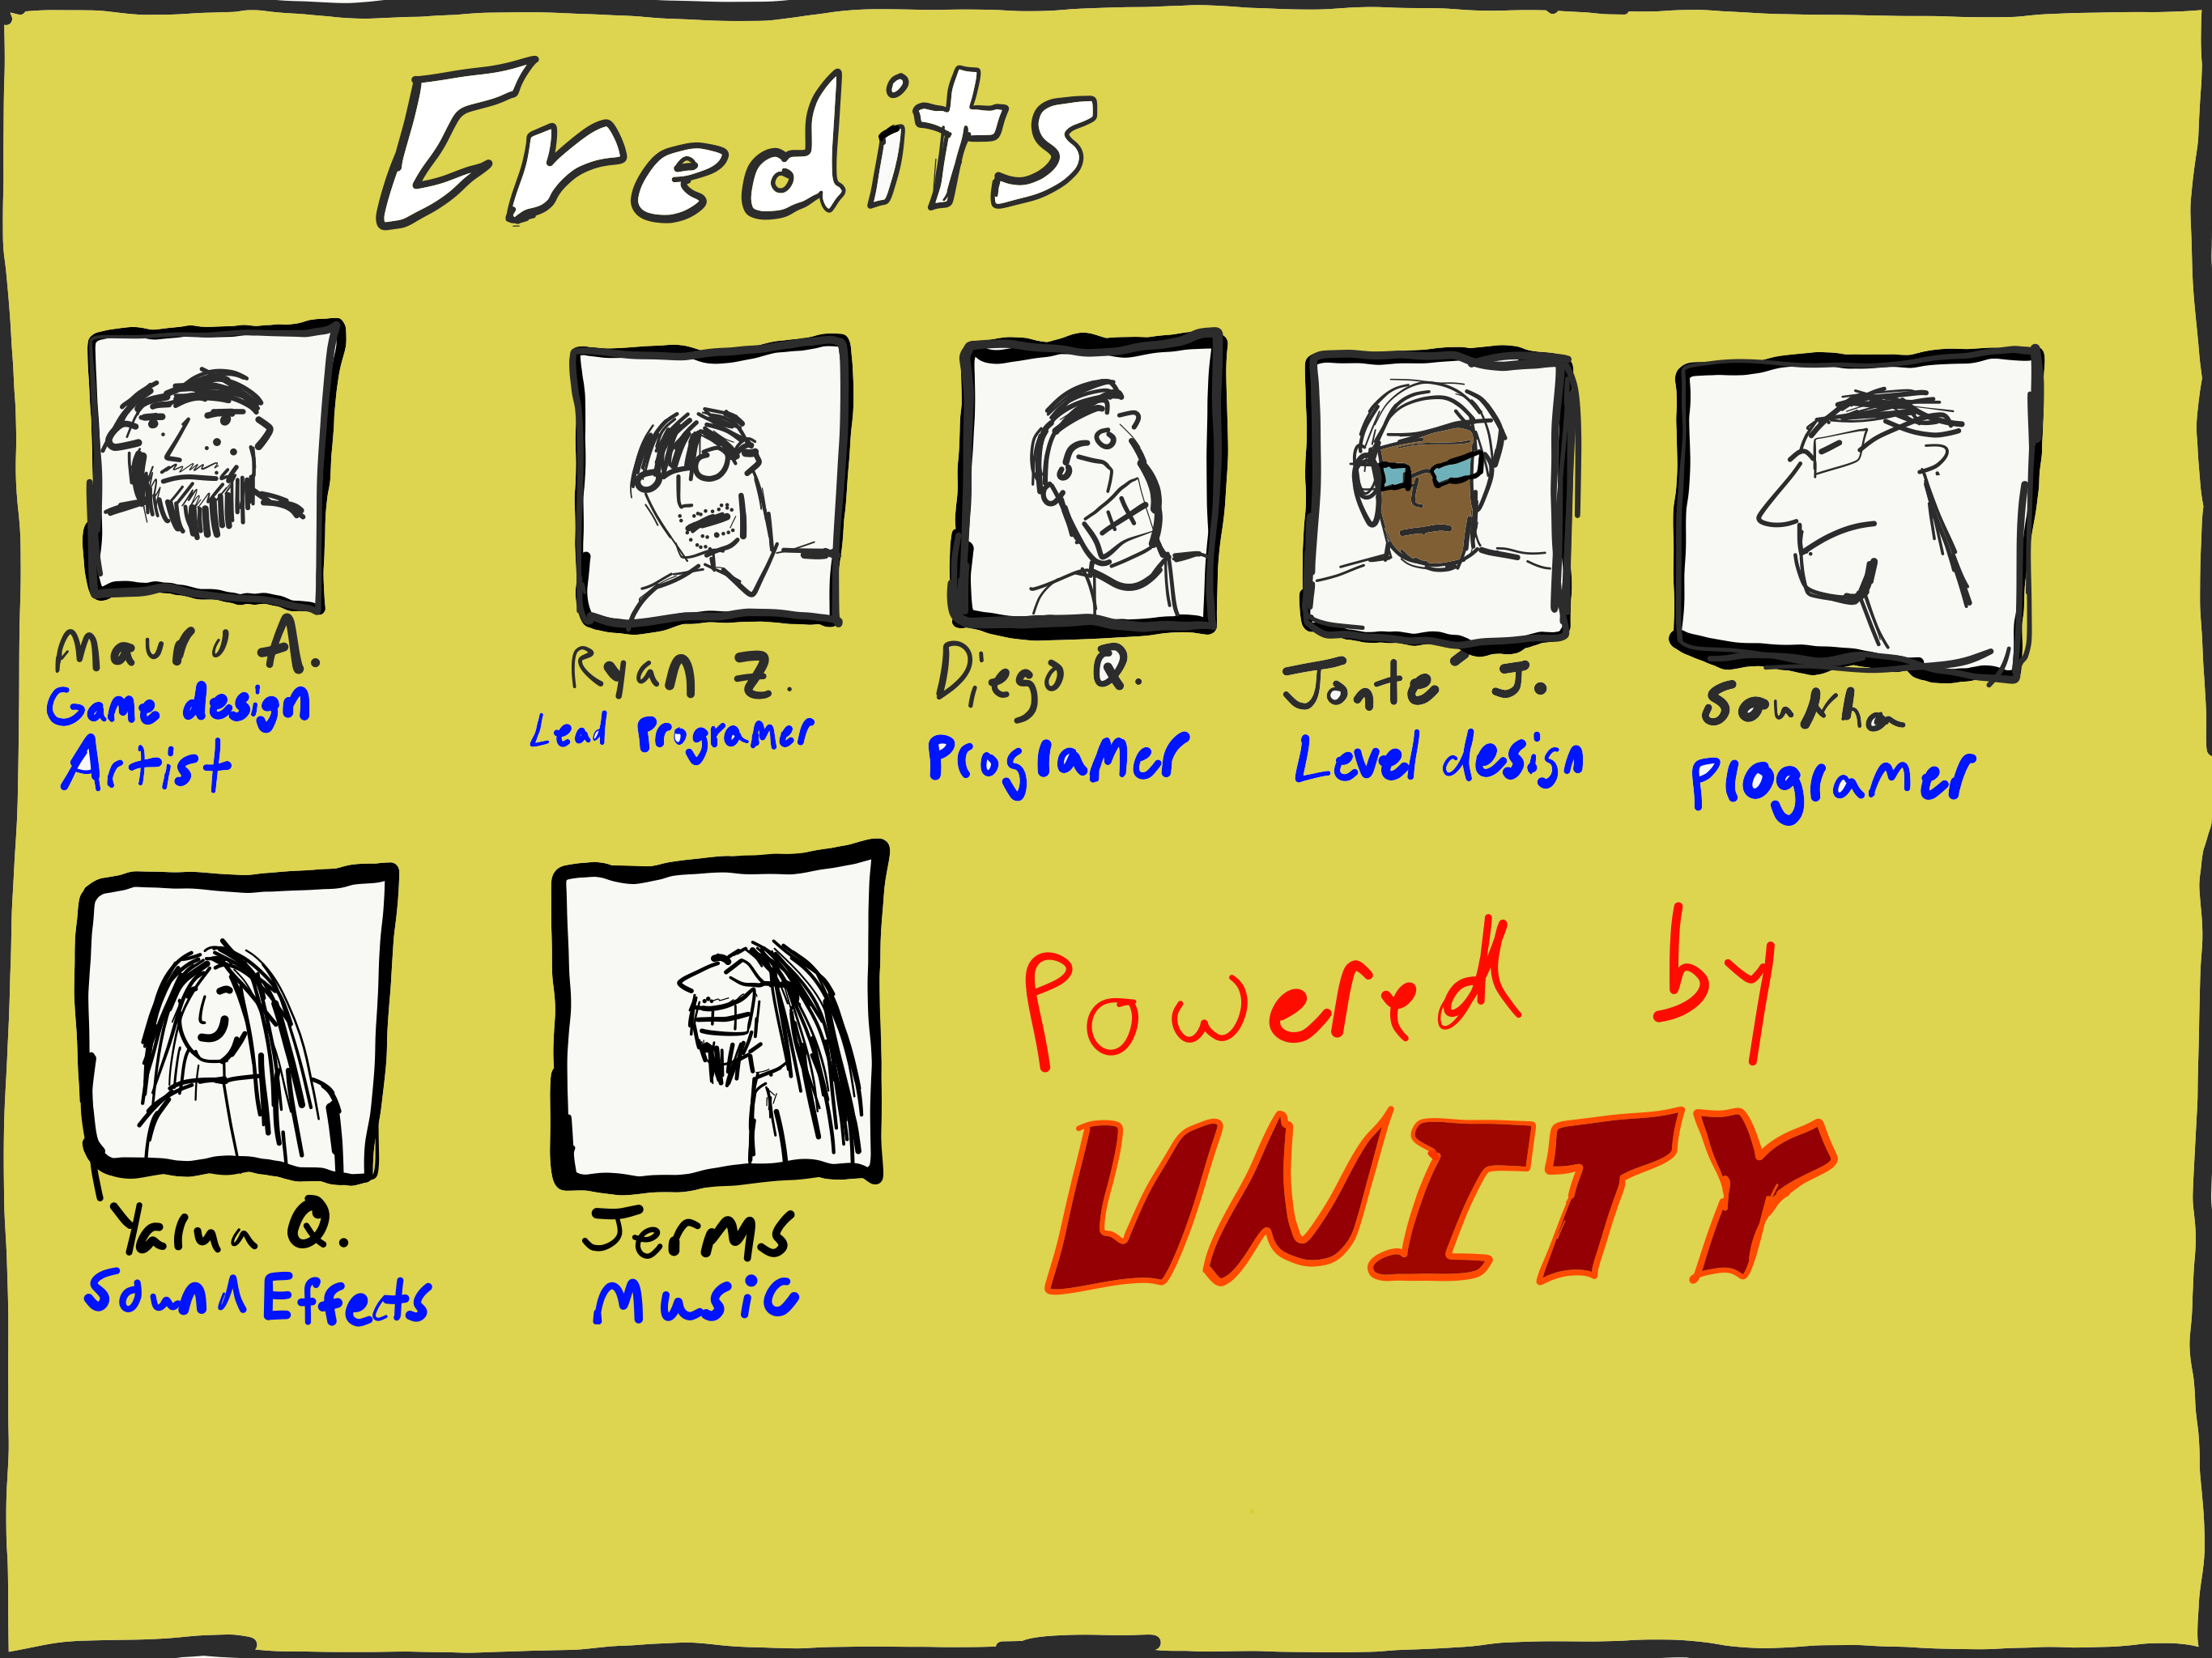 Credits
Mauro A.
Game design
Artist
Ryan Z.
Lead Programer
Diego Q.
Programer
Jonte J.
Level design
Sankha
Programer
Yann Q.
Sound Effects
Jerms
Music
Powered by
UNITY